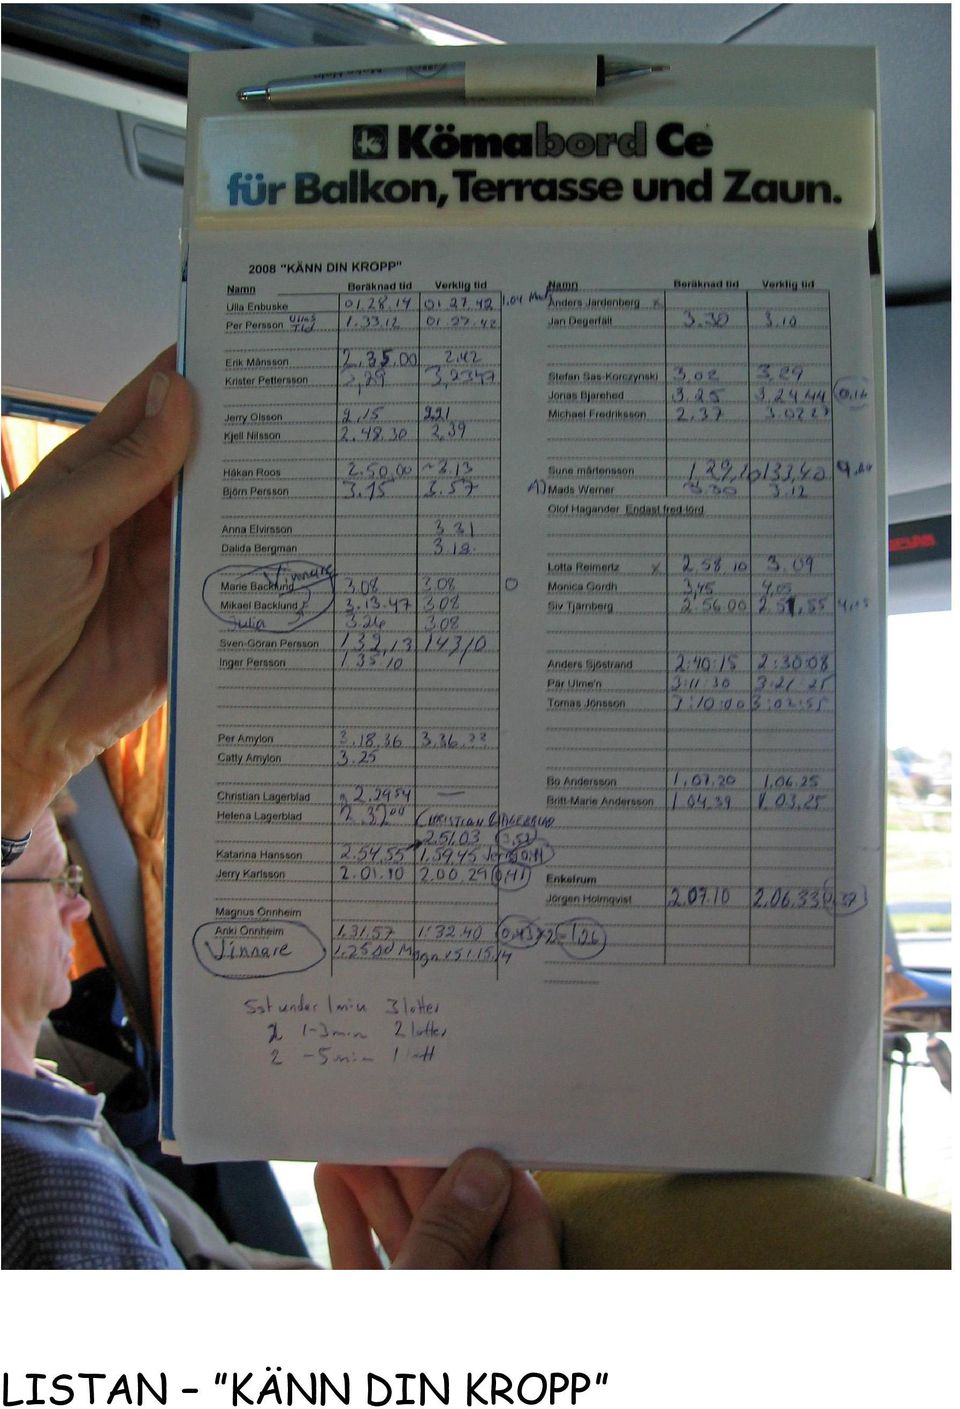 Kömabord Ce
für Balkon, Terrasse und Zaun.
2008 "KÄNN DIN KROPP"
Namn Beräknad tid Verklig tid
Ulla Enbuske 01.28.14 01.27.42 1,04
Per Persson Ullas Tid 1.33.12 01.27.42
Erik Månsson 2.35.00 2.42
Krister Pettersson
Jerry Olsson 2.15 221
Kjell Nilsson 2.48.30 2.39
Håkan Roos 2.50.00 ~3.13
Björn Persson 3.15 3.57
Anna Elvirsson 3.31
Dalida Bergman 3.18
Vinnare
Marie Backlund 3.08 3.08 0
Mikael Backlund 3.13.47 3.08
Julia 3.26 3.08
Sven-Göran Persson 1.32,13 14310
Inger Persson 1.35.10
Per Amylon 3.18.36 3.36.??
Catty Amylon 3.25
Christian Lagerblad 2.2954 —
Helena Lagerblad 2.32 00 CHRISTIAN LAGERBLAD
2.51.03 3,52
Katarina Hansson 2.54.55 1.59.45 Jerry 0,41
Jerry Karlsson 2.01.10 2.00.29 0,41
Magnus Önnheim
Anki Önnheim 1.31.57 1:32.40 0,43x2=1,26
Vinnare 1.25
Namn Beräknad tid Verklig tid
Anders Jardenberg x
Jan Degerfält 3.30 3.10
Stefan Sas-Korczynski 3.02 3.29
Jonas Bjarehed 3.25 3.24.44 0.16
Michael Fredriksson 2.37 3.0227
Sune mårtensson 1.29,10 133,40
A) Mads Werner 3.30 3.12
Olof Hagander Endast fred lörd
Lotta Reimertz x 2.58.10 3.09
Monica Gordh 3,45 4,05
Siv Tjärnberg 2.56.00 2.51.55 4,05
Anders Sjöstrand 2:40:15 2:30:08
Pär Ulme'n 3:11:30 3:21:25
Tomas Jönsson 3:10:00 3:02:55
Bo Andersson 1.07.20 1.06.25
Britt-Marie Andersson 1.04.39 1.03.25
Enkelrum
Jörgen Holmqvist 2.07.10 2.06.33 0,37
Sst under 1 min 3 lotter
1-3 min 2 lotter
2 -5 min 1 lott
LISTAN – "KÄNN DIN KROPP"